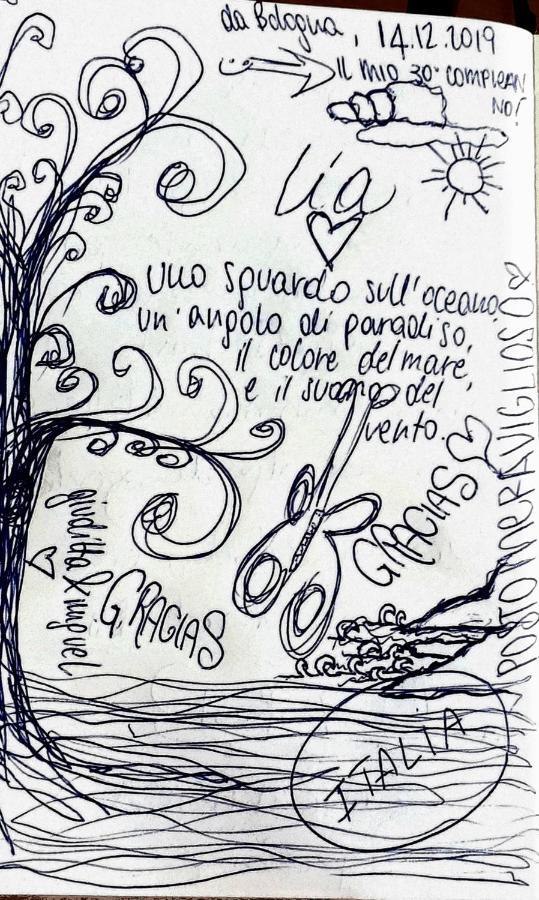 da Bologna, 14.12.2019
IL MIO 30° COMPLEAN
NO!
Lia
Uno sguardo sull'oceano,
un'angolo di paradiso,
il colore del mare,
e il suono del
vento.
GRACIAS
POSTO MERAVIGLIOSO
giuditta & miguel
GRACIAS
ITALIA